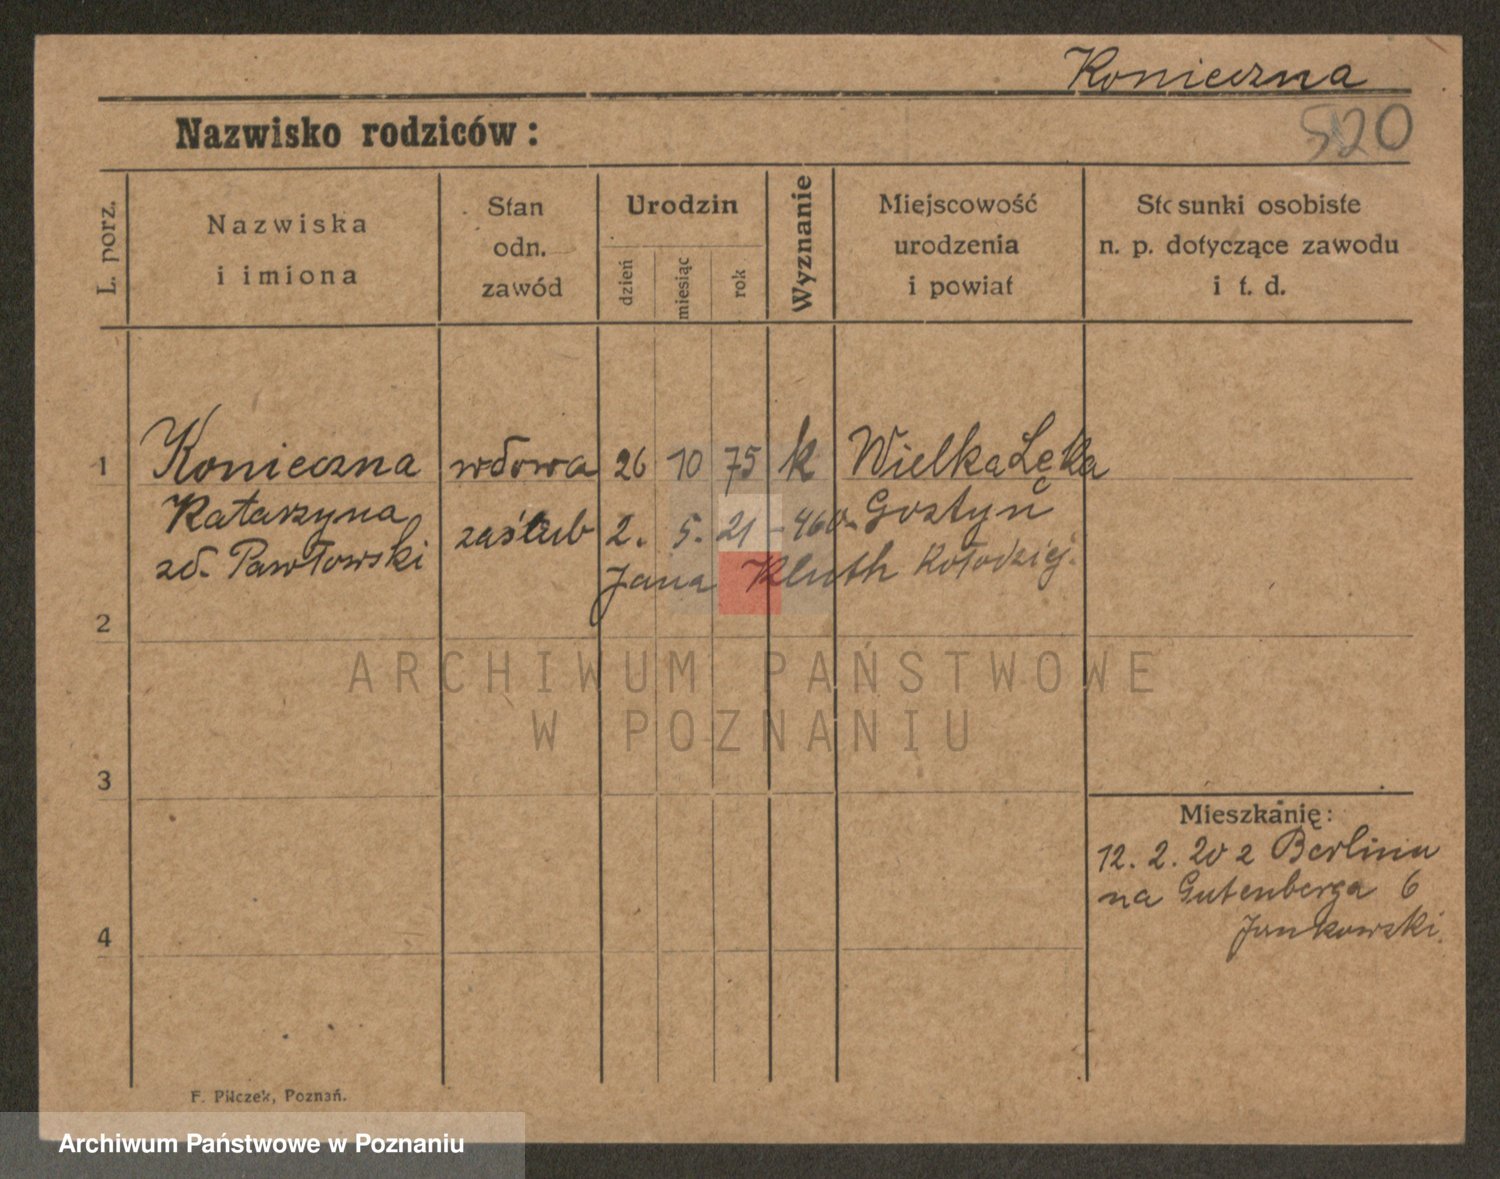 Konieczna
Nazwisko rodziców:
520
L. porz.
Nazwiska
i imiona
Stan
odn.
zawód
Urodzin
dzień
miesiąc
rok
Wyznanie
Miejscowość
urodzenia
i powiat
Stosunki osobiste
n. p. dotyczące zawodu
i t. d.
1 Konieczna wdowa 26 10 75 k Wielka Łęka
Katarzyna zaślub 2. 5. 21 - 460 - Gostyń
zd. Pawłowski Jana Kluth Kołodziej.
2
ARCHIWUM PAŃSTWOWE
W POZNANIU
3
Mieszkanię:
12. 2. 20 z Berlina
na Gutenberga 6
Jankowski.
4
F. Pilczek, Poznań.
Archiwum Państwowe w Poznaniu